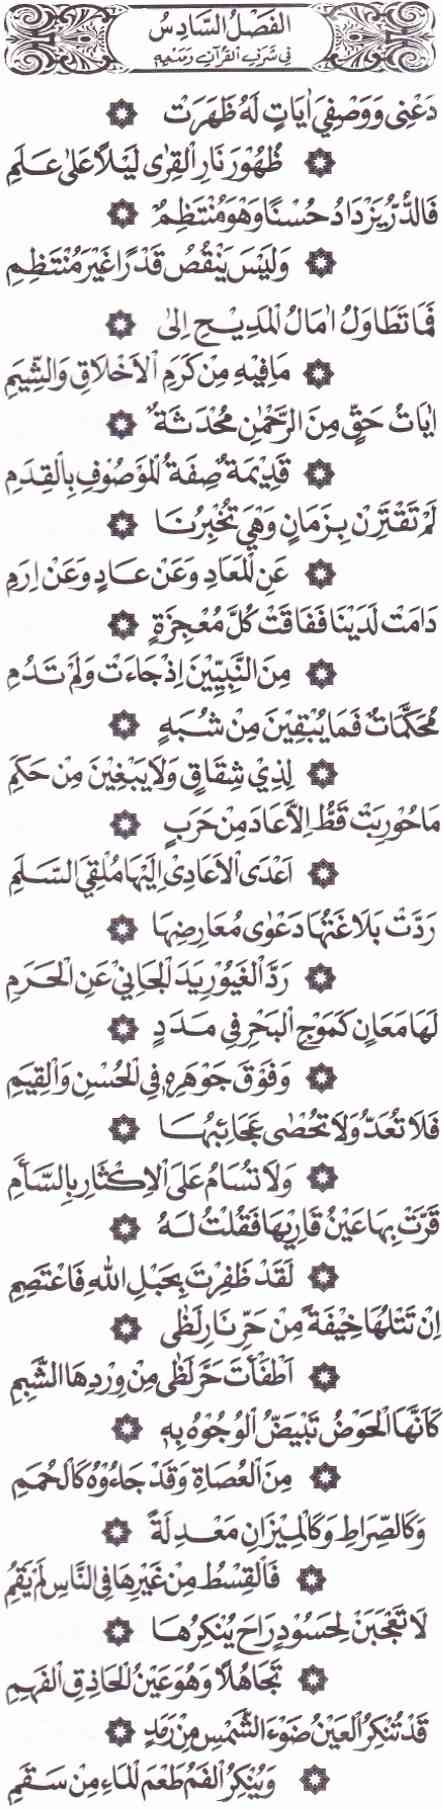 الفَصْلُ السَّادِسُ
فِي شَرَفِ القُرْآنِ وَمَدْحِهِ
دَعْنِي وَوَصْفِيَ اٰيَاتٍ لَهُ ظَهَرَتْ
ظُهُورَ نَارِ الْقِرٰى لَيْلًا عَلٰى عَلَمِ
فَالدُّرُّ يَزْدَادُ حُسْنًا وَهُوَ مُنْتَظِمٌ
وَلَيْسَ يَنْقُصُ قَدْرًا غَيْرَ مُنْتَظِمِ
فَمَا تَطَاوَلُ اٰمَالُ الْمَدِيْحِ اِلٰى
مَا فِيْهِ مِنْ كَرَمِ الْاَخْلَاقِ وَالشِّيَمِ
اٰيَاتُ حَقٍّ مِنَ الرَّحْمٰنِ مُحْدَثَةٌ
قَدِيْمَةٌ صِفَةُ الْمَوْصُوْفِ بِالْقِدَمِ
لَمْ تَقْتَرِنْ بِزَمَانٍ وَهْيَ تُخْبِرُنَا
عَنِ الْمَعَادِ وَعَنْ عَادٍ وَعَنْ اِرَمِ
دَامَتْ لَدَيْنَا فَفَاقَتْ كُلَّ مُعْجِزَةٍ
مِنَ النَّبِيِّيْنَ اِذْ جَاءَتْ وَلَمْ تَدُمِ
مُحَكَّمَاتٌ فَمَا يُبْقِيْنَ مِنْ شُبَهٍ
لِذِيْ شِقَاقٍ وَلَا يَبْغِيْنَ مِنْ حَكَمِ
مَا حُوْرِبَتْ قَطُّ اِلَّا عَادَ مِنْ حَرَبٍ
اَعْدَى الْاَعَادِيْ اِلَيْهَا مُلْقِيَ السَّلَمِ
رَدَّتْ بَلَاغَتُهَا دَعْوٰى مُعَارِضِهَا
رَدَّ الْغَيُوْرِ يَدَ الْجَانِيْ عَنِ الْحَرَمِ
لَهَا مَعَانٍ كَمَوْجِ الْبَحْرِ فِي مَدَدٍ
وَفَوْقَ جَوْهَرِهٖ فِي الْحُسْنِ وَالْقِيَمِ
فَلَا تُعَدُّ وَلَا تُحْصٰى عَجَائِبُهَا
وَلَا تُسَامُ عَلَى الْاِكْثَارِ بِالسَّأَمِ
قَرَّتْ بِهَا عَيْنُ قَارِيْهَا فَقُلْتُ لَهُ
لَقَدْ ظَفِرْتَ بِحَبْلِ اللّٰهِ فَاعْتَصِمِ
اِنْ تَتْلُهَا خِيْفَةً مِنْ حَرِّ نَارِ لَظٰى
اَطْفَأْتَ حَرَّ لَظٰى مِنْ وِرْدِهَا الشَّبِمِ
كَاَنَّهَا الْحَوْضُ تَبْيَضُّ الْوُجُوْهُ بِهٖ
مِنَ الْعُصَاةِ وَقَدْ جَاءُوْهُ كَالْحُمَمِ
وَكَالصِّرَاطِ وَكَالْمِيْزَانِ مَعْدِلَةً
فَالْقِسْطُ مِنْ غَيْرِهَا فِي النَّاسِ لَمْ يَقُمِ
لَا تَعْجَبَنْ لِحَسُوْدٍ رَاحَ يُنْكِرُهَا
تَجَاهُلًا وَهُوَ عَيْنُ الْحَاذِقِ الْفَهِمِ
قَدْ تُنْكِرُ الْعَيْنُ ضَوْءَ الشَّمْسِ مِنْ رَمَدٍ
وَيُنْكِرُ الْفَمُ طَعْمَ الْمَاءِ مِنْ سَقَمِ